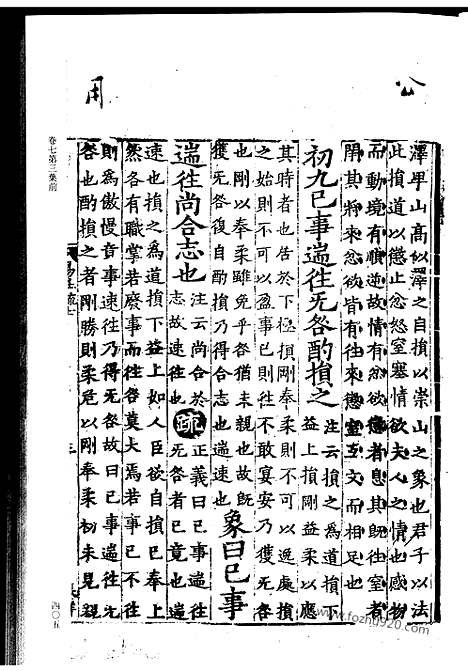 公
用
澤卑山高似澤之自損以崇山之象也君子以法
此損道以懲止忿怒窒塞情欲夫人之情也感物
而動境有順逆故情有忿欲懲者息其既往窒者
閉其將來忿欲皆有往來懲窒互文而相足也
初九巳事遄往无咎酌損之注云損之為道損下
益上損剛益柔以應
其時者也居於下極損剛奉柔則不可以逸處損
之始則不可以盈事巳則往不敢宴安乃獲无咎
也剛以奉柔雖免乎咎猶未親也故既
獲无咎復自酌損乃得合志也遄速也象曰巳事
遄往尚合志也注云尚合於
志故速往也疏正義曰巳事遄往
无咎者巳竟也遄
速也損之為道損下益上如人臣欲自損巳奉上
然各有職掌若廢事而往咎莫大焉若事巳不往
則為傲慢竟事速往乃得无咎故曰巳事遄往无
咎也酌損之者剛勝則柔危以剛奉柔初未見親
易注疏七
三
卷七第三葉前
四〇五
www.fozhg920.com